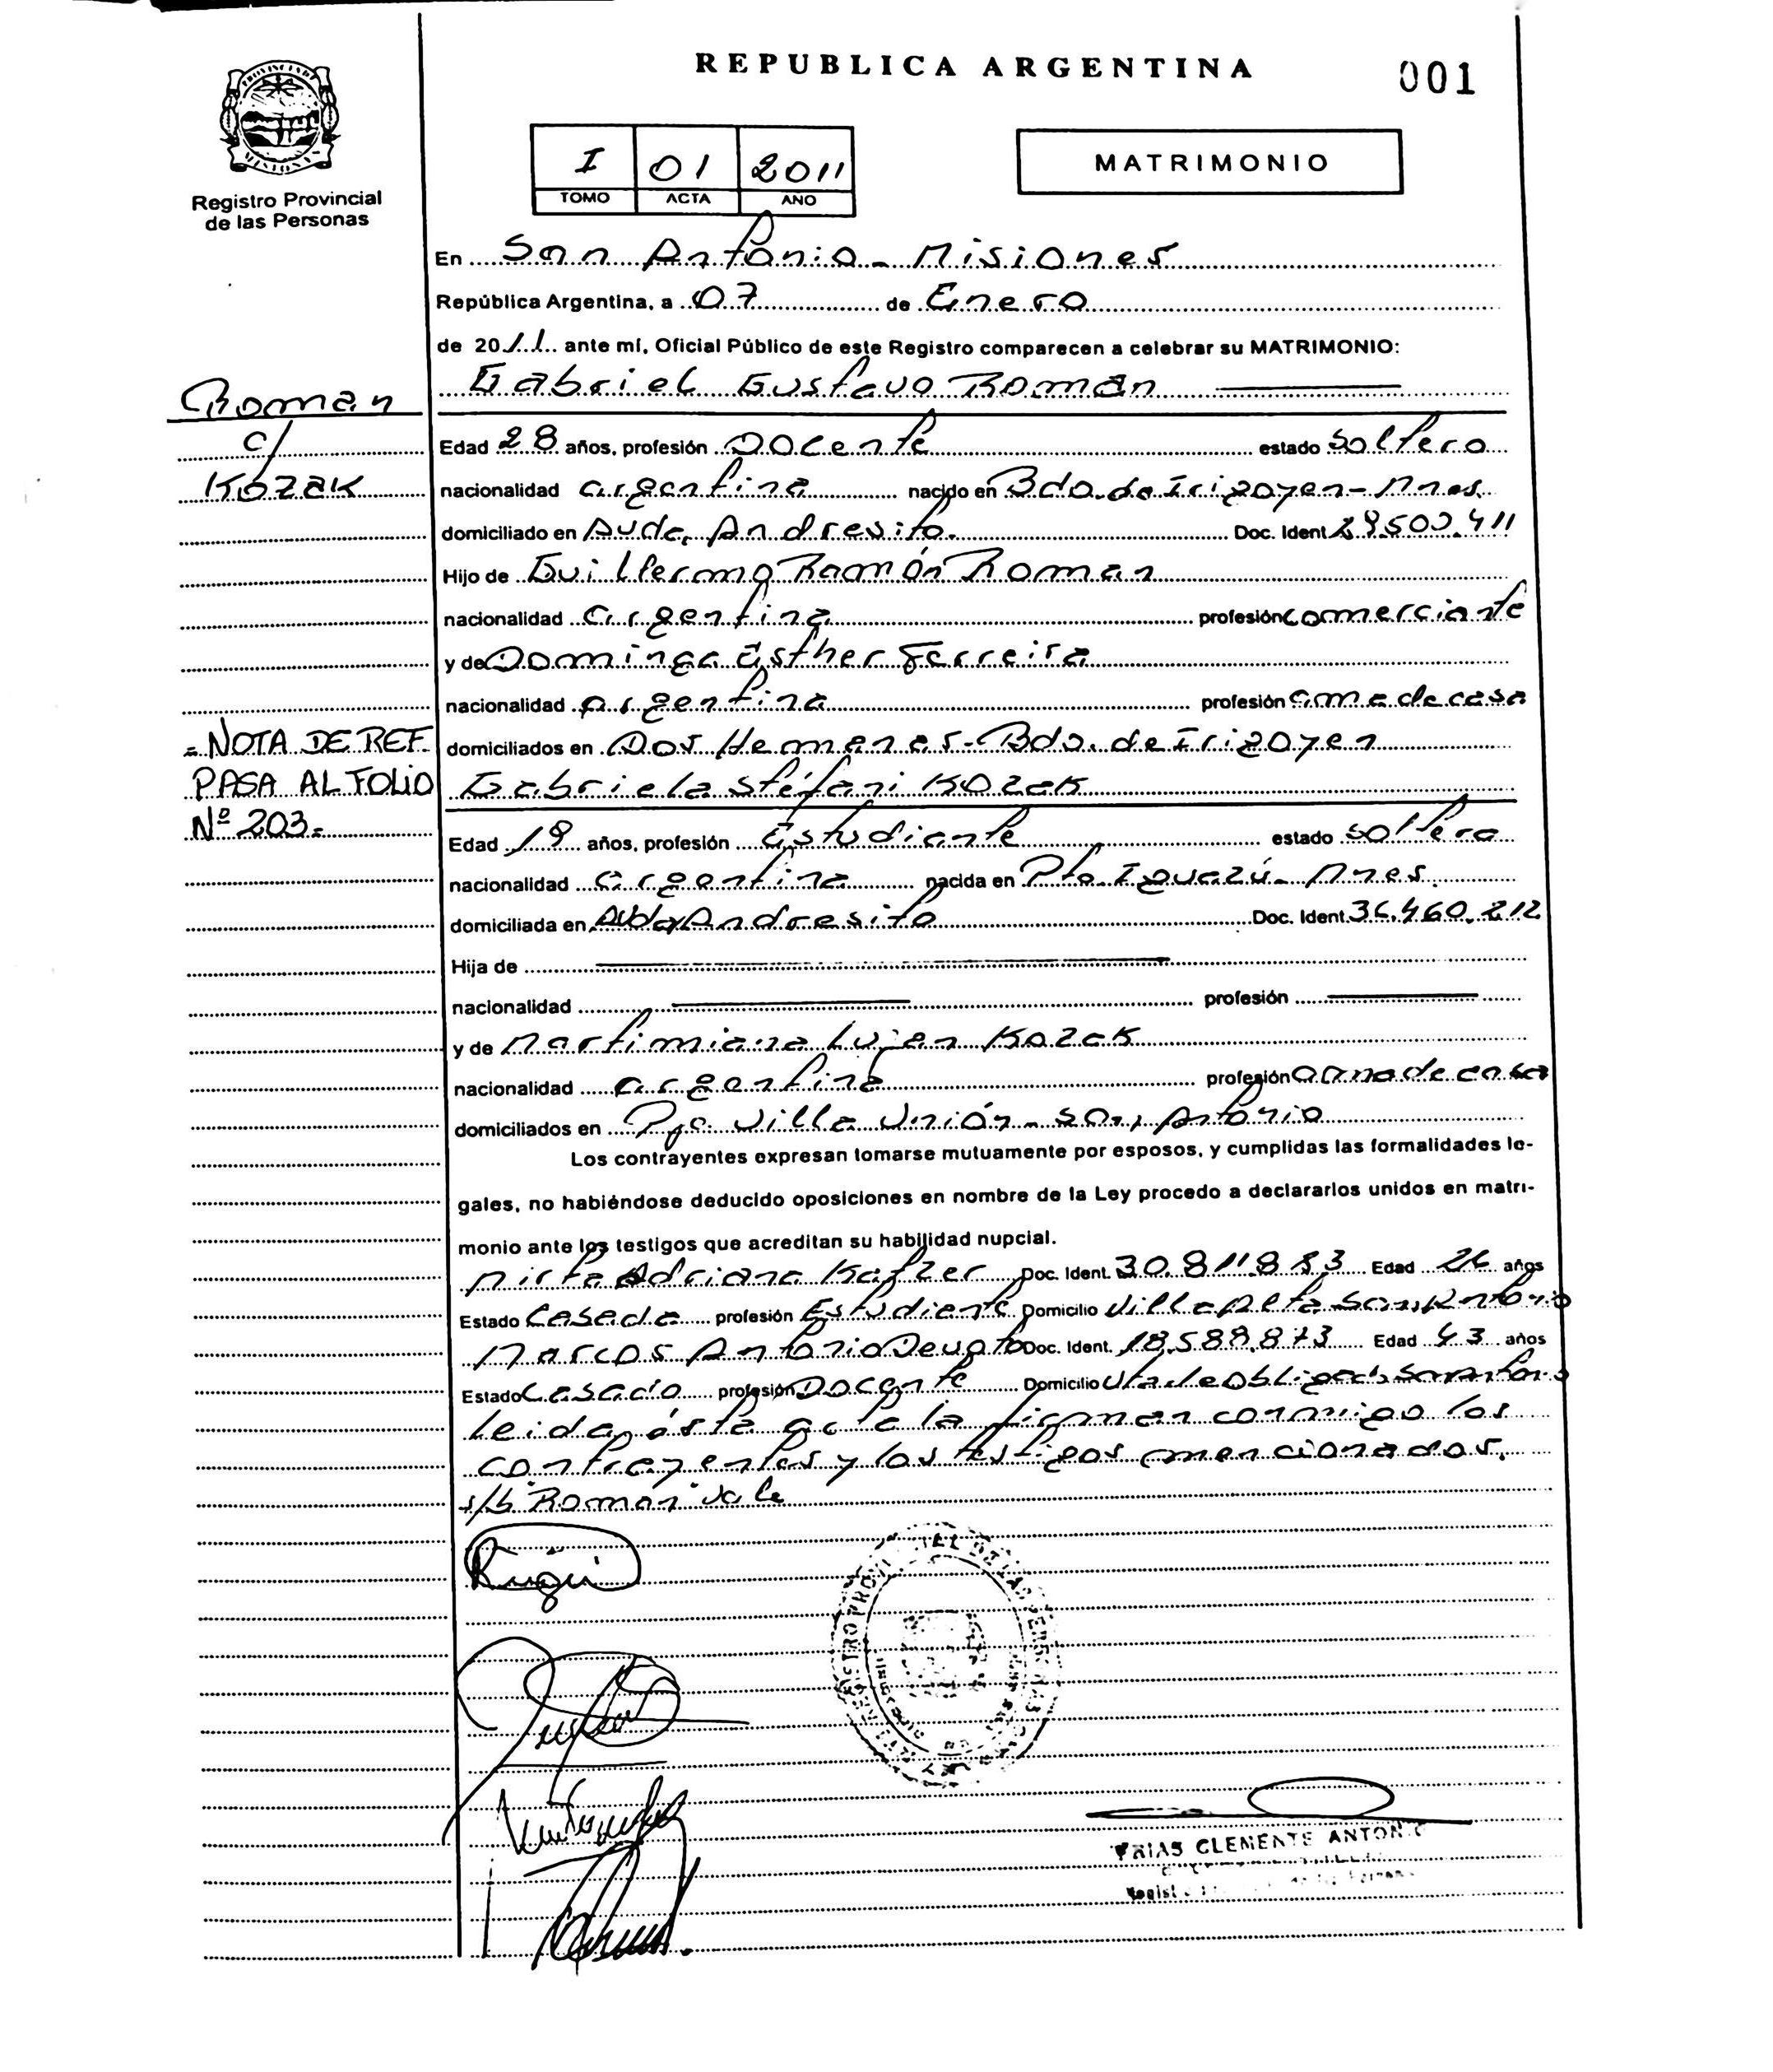 REPUBLICA ARGENTINA
001
PROVINCIA DE MISIONES
Registro Provincial
de las Personas
I 01 2011
TOMO ACTA AÑO
MATRIMONIO
En San Antonio - Misiones
República Argentina, a 07 de Enero
de 2011 ante mí, Oficial Público de este Registro comparecen a celebrar su MATRIMONIO:
Gabriel Gustavo Roman
Roman
c/
Kozak
Edad 28 años, profesión Docente estado Soltero
nacionalidad argentina nacido en Bdo. de Irigoyen - Mnes.
domiciliado en Avda. Andresito. Doc. Ident 29.500.411
Hijo de Guillermo Ramón Roman
nacionalidad argentina profesión comerciante
y de Dominga Esther Ferreira
nacionalidad argentina profesión ama de casa
domiciliados en Dos Hermanas - Bdo. de Irigoyen
- NOTA DE REF.
PASA AL FOLIO
Nº 203-
Gabriela Stéfani Kozak
Edad 19 años, profesión Estudiante estado Soltera
nacionalidad argentina nacida en Pto. Iguazú - Mnes.
domiciliada en Avda Andresito Doc. Ident. 36.460.212
Hija de
nacionalidad profesión
y de Martimiana Lujan Kozak
nacionalidad argentina profesión ama de casa
domiciliados en Pje. Villa Unión - San Antonio
Los contrayentes expresan tomarse mutuamente por esposos, y cumplidas las formalidades le-
gales, no habiéndose deducido oposiciones en nombre de la Ley procedo a declararlos unidos en matri-
monio ante los testigos que acreditan su habilidad nupcial.
Mirta Adriana Kafzer Doc. Ident. 30.811.883 Edad 26 años
Estado Casada profesión Estudiante Domicilio Villa Alta San Antonio
Marcos Antonio Doc. Ident. 18.588.873 Edad 43 años
Estado Casado profesión Docente Domicilio
Leida ésta acta la firman conmigo los
contrayentes y los testigos mencionados.
s/b "Roman" Vale
FRIAS CLEMENTE ANTONIO